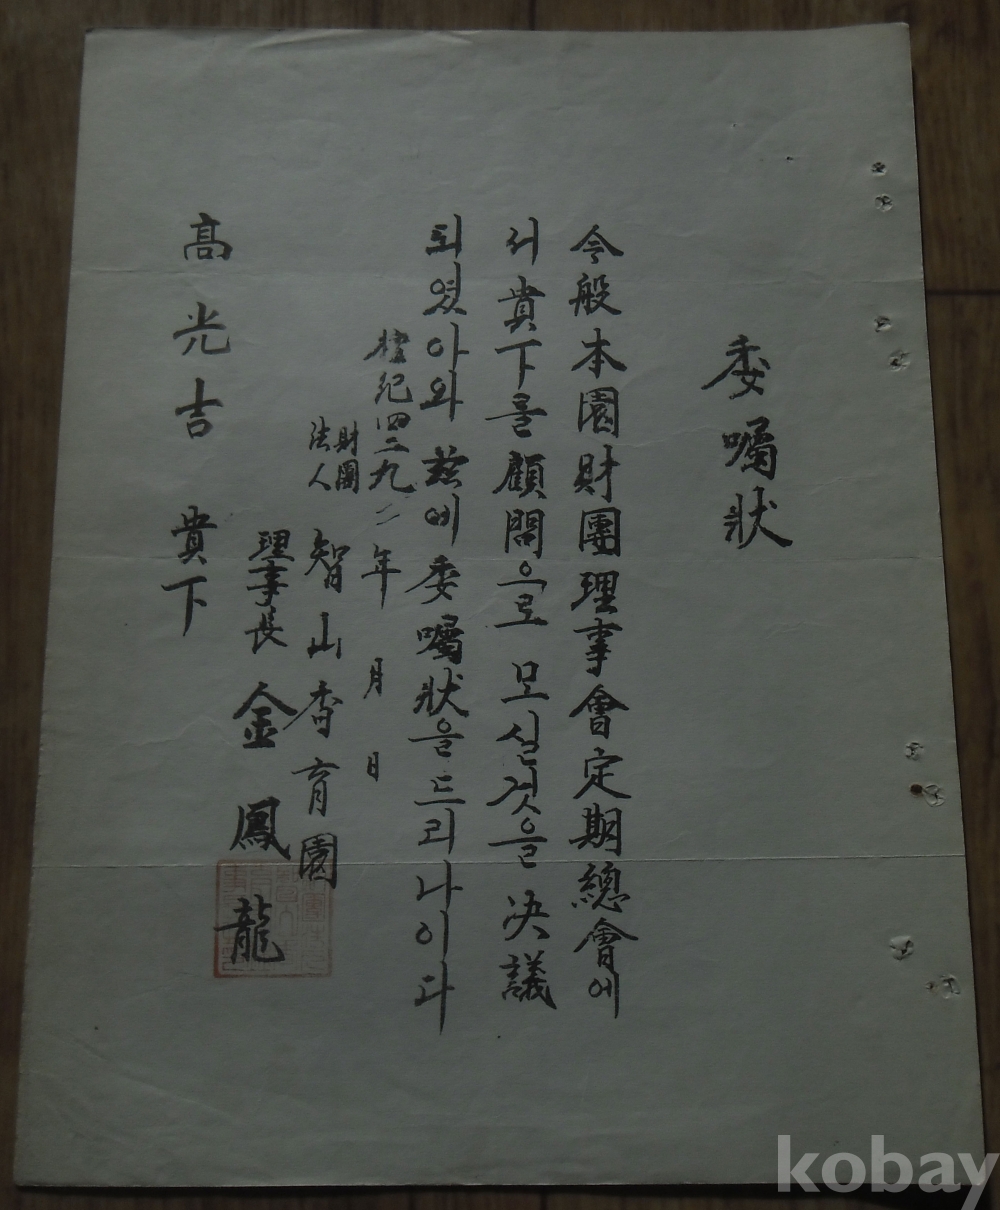 委囑狀
今般本園財團理事會定期總會에
서貴下를顧問으로 모실것을 决議
되였아와 玆에 委囑狀을드리나이다
檀紀四二九二年 月 日
財團
法人 智山香育園
理事長 金鳳龍
高光吉 貴下
kobay